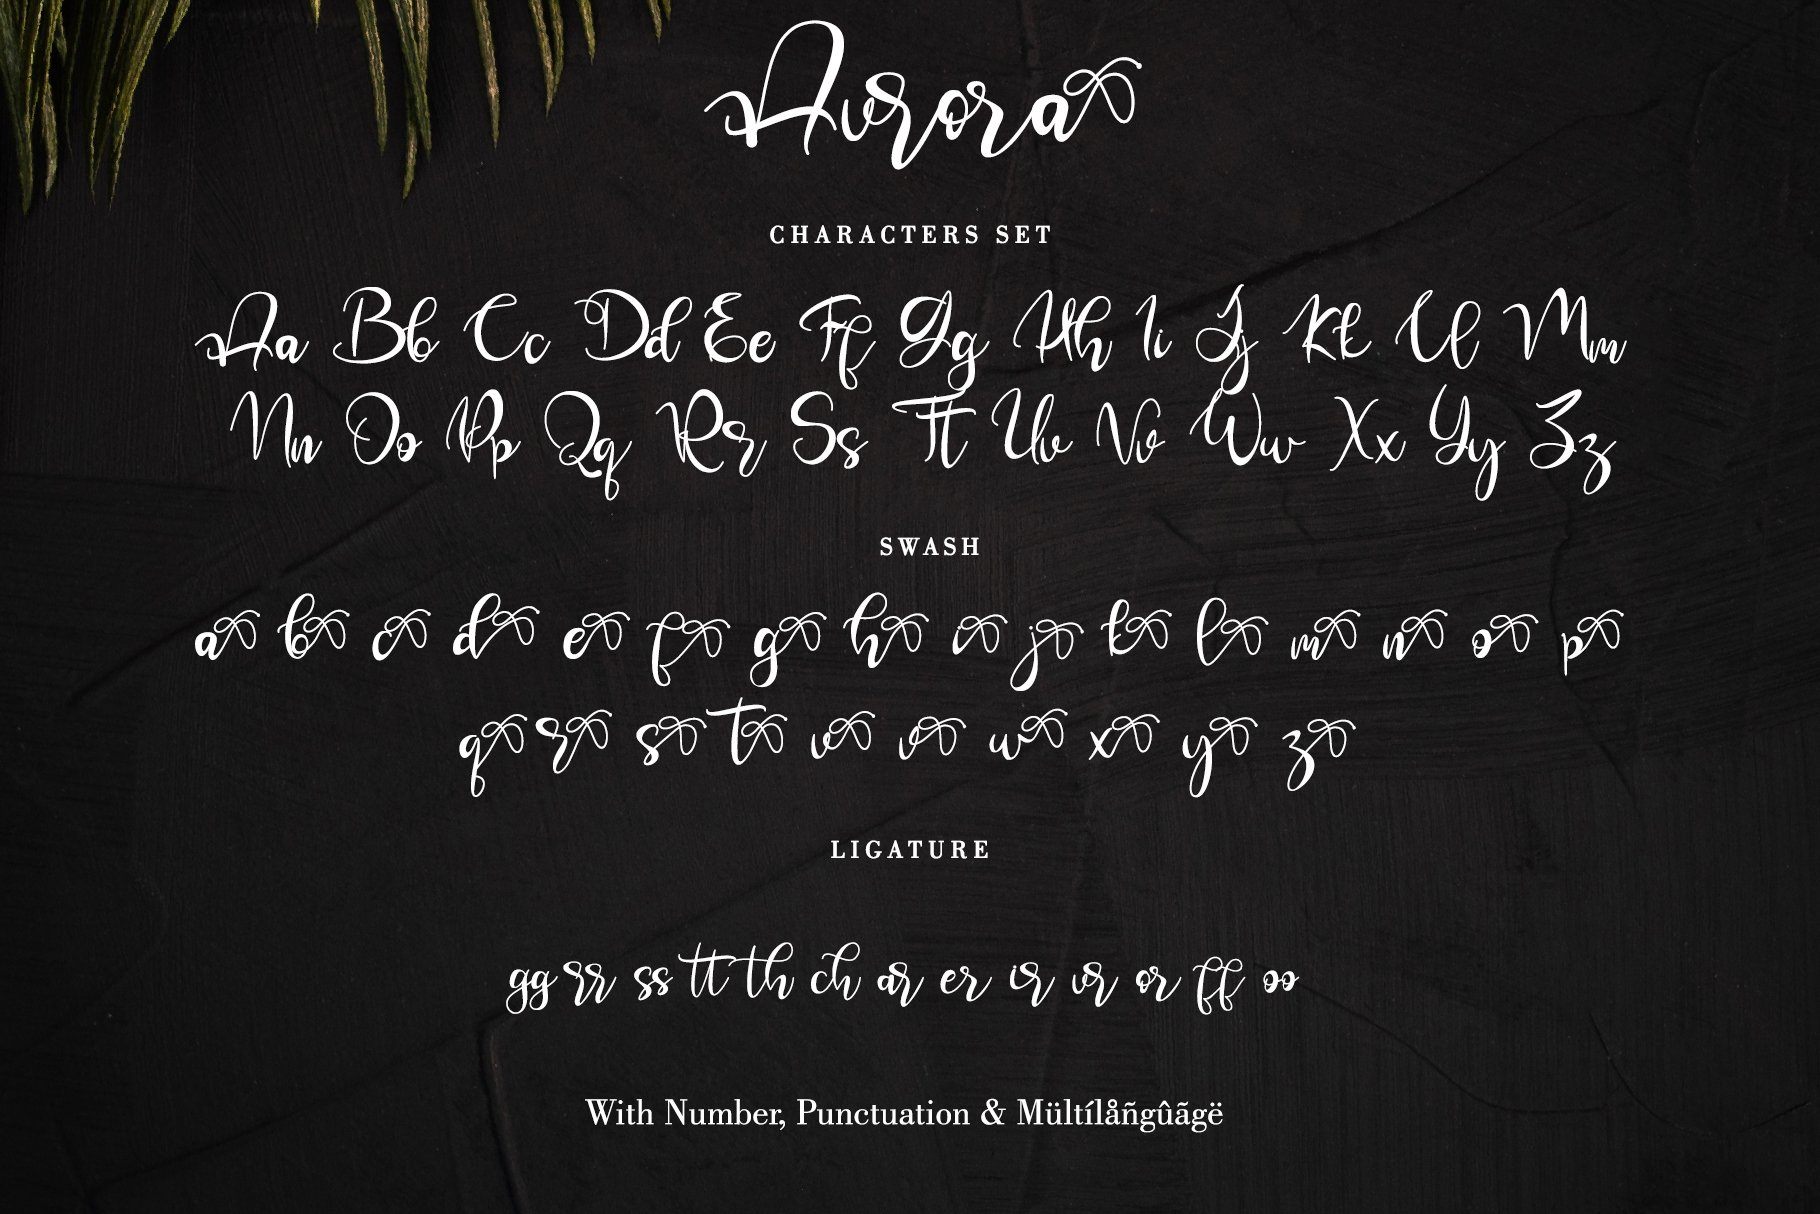 Aurora
CHARACTERS SET
Aa Bb Cc Dd Ee Ff Gg Hh Ii Jj Kk Ll Mm
Nn Oo Pp Qq Rr Ss Tt Uu Vv Ww Xx Yy Zz
SWASH
a b c d e f g h i j k l m n o p
q r s t u v w x y z
LIGATURE
gg rr ss tt th ch ar er ir ur or ff oo
With Number, Punctuation & Mültílåñgûãgë